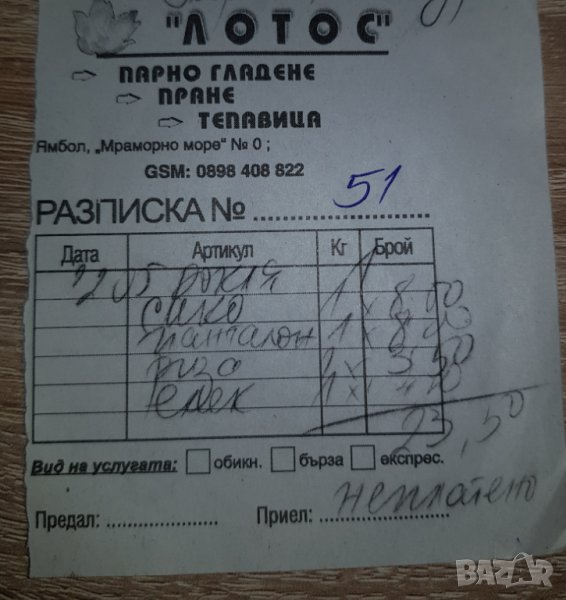 "ЛОТОС"
ПАРНО ГЛАДЕНЕ
ПРАНЕ
ТЕПАВИЦА
Ямбол, „Мраморно море" № 0 ;
GSM: 0898 408 822
РАЗПИСКА № 51
Дата Артикул Кг Брой
рокля 1
сако 1 x 8.00
панталон 1 x 8.00
риза 1 x 3.50
елек 1 x 4.00
23,50
Вид на услугата: обикн. бърза експрес.
неплатено
Предал: ..................... Приел: .........................
BAZAR